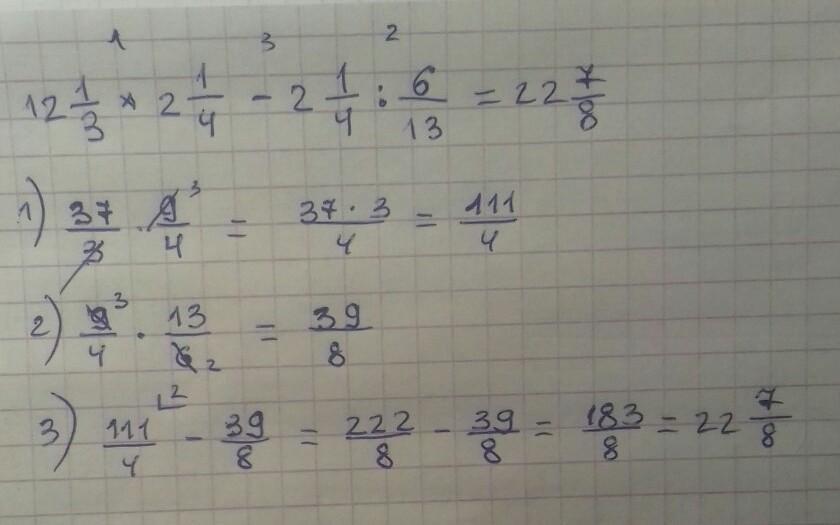 1 3 2
12 1/3 × 2 1/4 - 2 1/4 : 6/13 = 22 7/8
1) 37/3 · 9/4 3 = 37 · 3/4 = 111/4
2) 9/4 3 · 13/6 2 = 39/8
3) 111/4 2 - 39/8 = 222/8 - 39/8 = 183/8 = 22 7/8